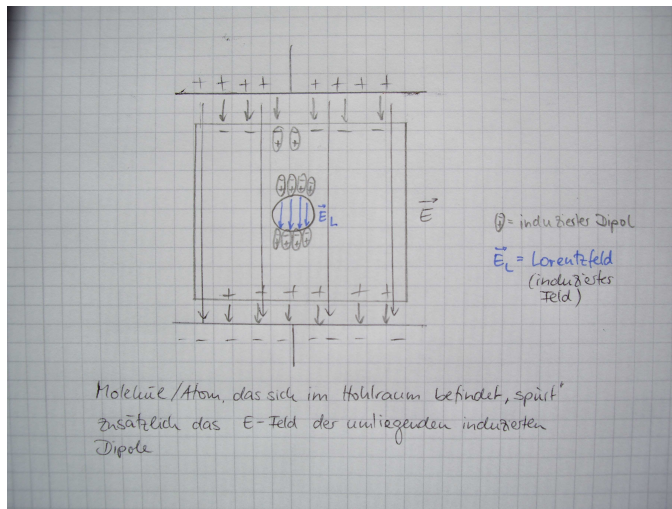 + + + + + + + +
− − − − − −
E_L
E
= induziertes Dipol
E_L = Lorentzfeld
(induziertes
Feld)
+ + + + + +
− − − − − − − −
Molekül/Atom, das sich im Hohlraum befindet, „spürt"
zusätzlich das E-Feld der umliegenden induzierten
Dipole